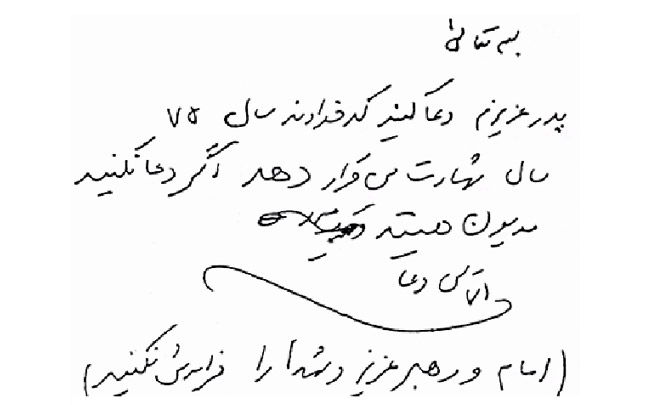 بسمه تعالی
پدر عزیزم دعا کنید که خداوند سال ۷۵
سال شهادت من قرار دهد اگر دعا نکنید
مدیون هستید
التماس دعا
(امام و رهبر عزیز و شهدا را فراموش نکنید)